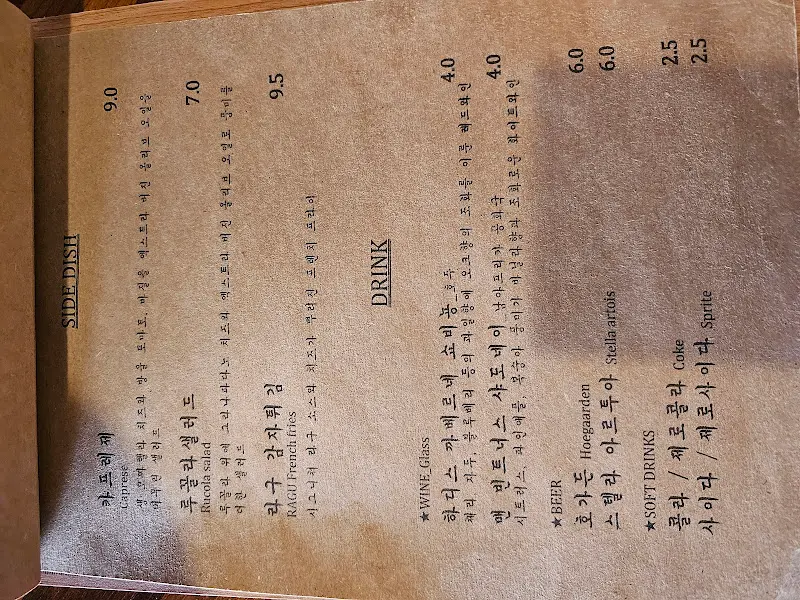 SIDE DISH
카프레제 9.0
Caprese
생 모짜렐라 치즈와 방울 토마토, 바질을 엑스트라 버진 올리브 오일을
더한 샐러드
루꼴라샐러드 7.0
Rucola salad
루꼴라 위에 그라나파다노 치즈와 엑스트라 버진 올리브 오일로 풍미를
더한 샐러드
라구 감자튀김 9.5
RAGU French fries
시그니처 라구 소스와 치즈가 뿌려진 프렌치 프라이
DRINK
★WINE_Glass
하디스 까베르네 쇼비뇽_호주 4.0
체리 자두, 블루베리 등의 과일향에 오크향의 조화를 이룬 레드와인
맨 빈트너스 샤도네이_남아프리카 공화국 4.0
시트러스, 파인애플, 복숭아 풍미가 바닐라향과 조화로운 화이트와인
★BEER
호가든 Hoegaarden 6.0
스텔라 아르투아 Stella artois 6.0
★SOFT DRINKS
콜라 / 제로콜라 Coke 2.5
사이다 / 제로사이다 Sprite 2.5